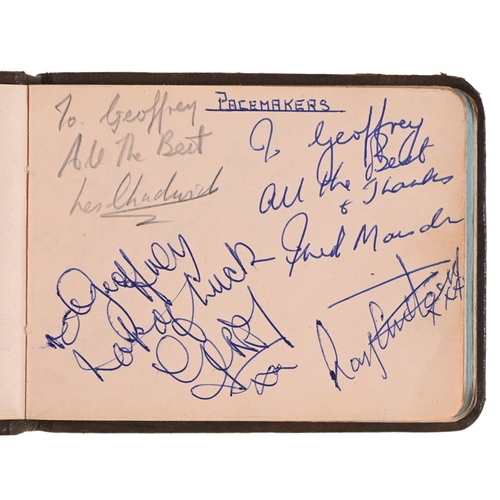 PACEMAKERS
To Geoffrey
All The Best
Les Chadwick
To Geoffrey
All The Best
& Thanks
Fred Marsden
To Geoffrey
Lots of Luck
Gerry
xxx
Ray